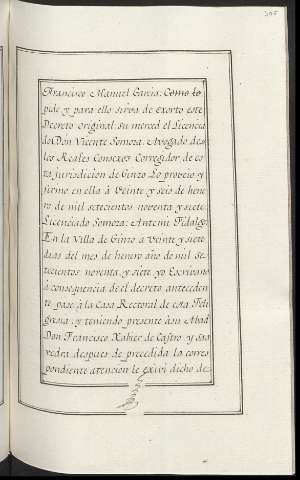 Francisco Manuel Garcia: Como lo
pide y para ello sirva de exorto este
Decreto original: su merced el Licencia
do Don Vicente Somoza. Avogado de
los Reales Consexos Corregidor de es
ta jurisdicion de Ginzo Lo proveio y
firmo en ella à Veinte y seis de hene
ro de mil setecientos noventa y siete
Licenciado Somoza: Antemi Fidalgo
En la Villa de Ginzo à Veinte y siete
dias del mes de henero año de mil se
ticientos noventa y siete yo Escrivano
à consequencia de el decreto anteceden
te pase à la Casa Rectoral de esta Feli
gresia, y teniendo presente à su Abad
Don Francisco Xabier de Castro y Saa
vedra despues de precedida la corres
pondiente atención le exivi dicho de